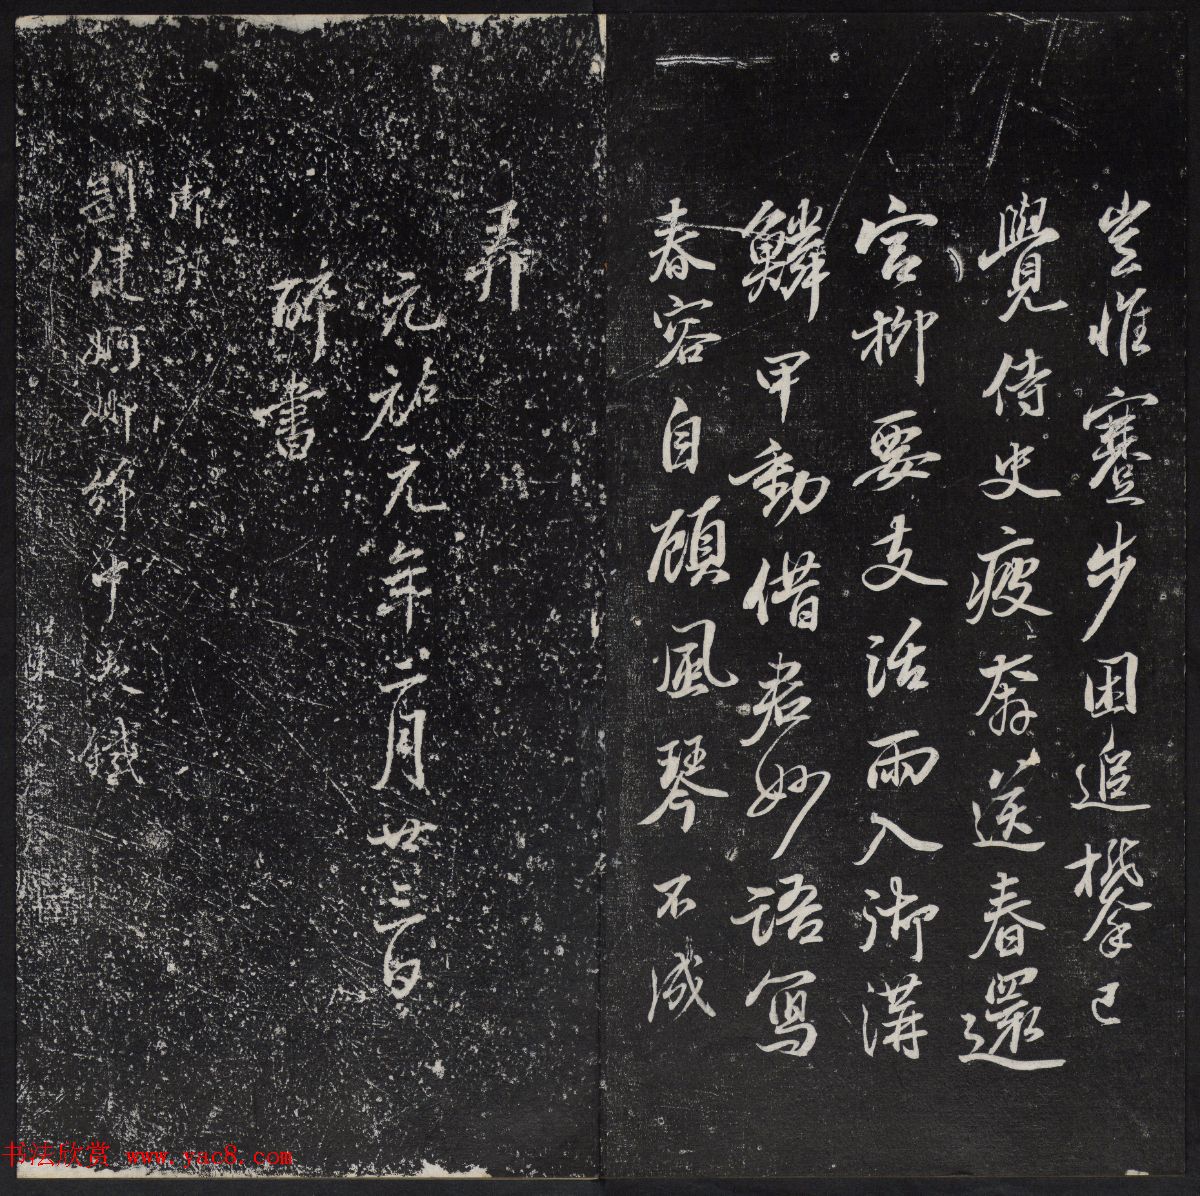 豈惟蹇步困追攀已
覺侍史疲奔送春還
宮柳要支活雨入御溝
鱗甲動借君妙語寫
春容自顧風琴不成
弄
元祐元年二月廿三日
醉書
劉健
中吳鐵
书法欣赏 www.yac8.com